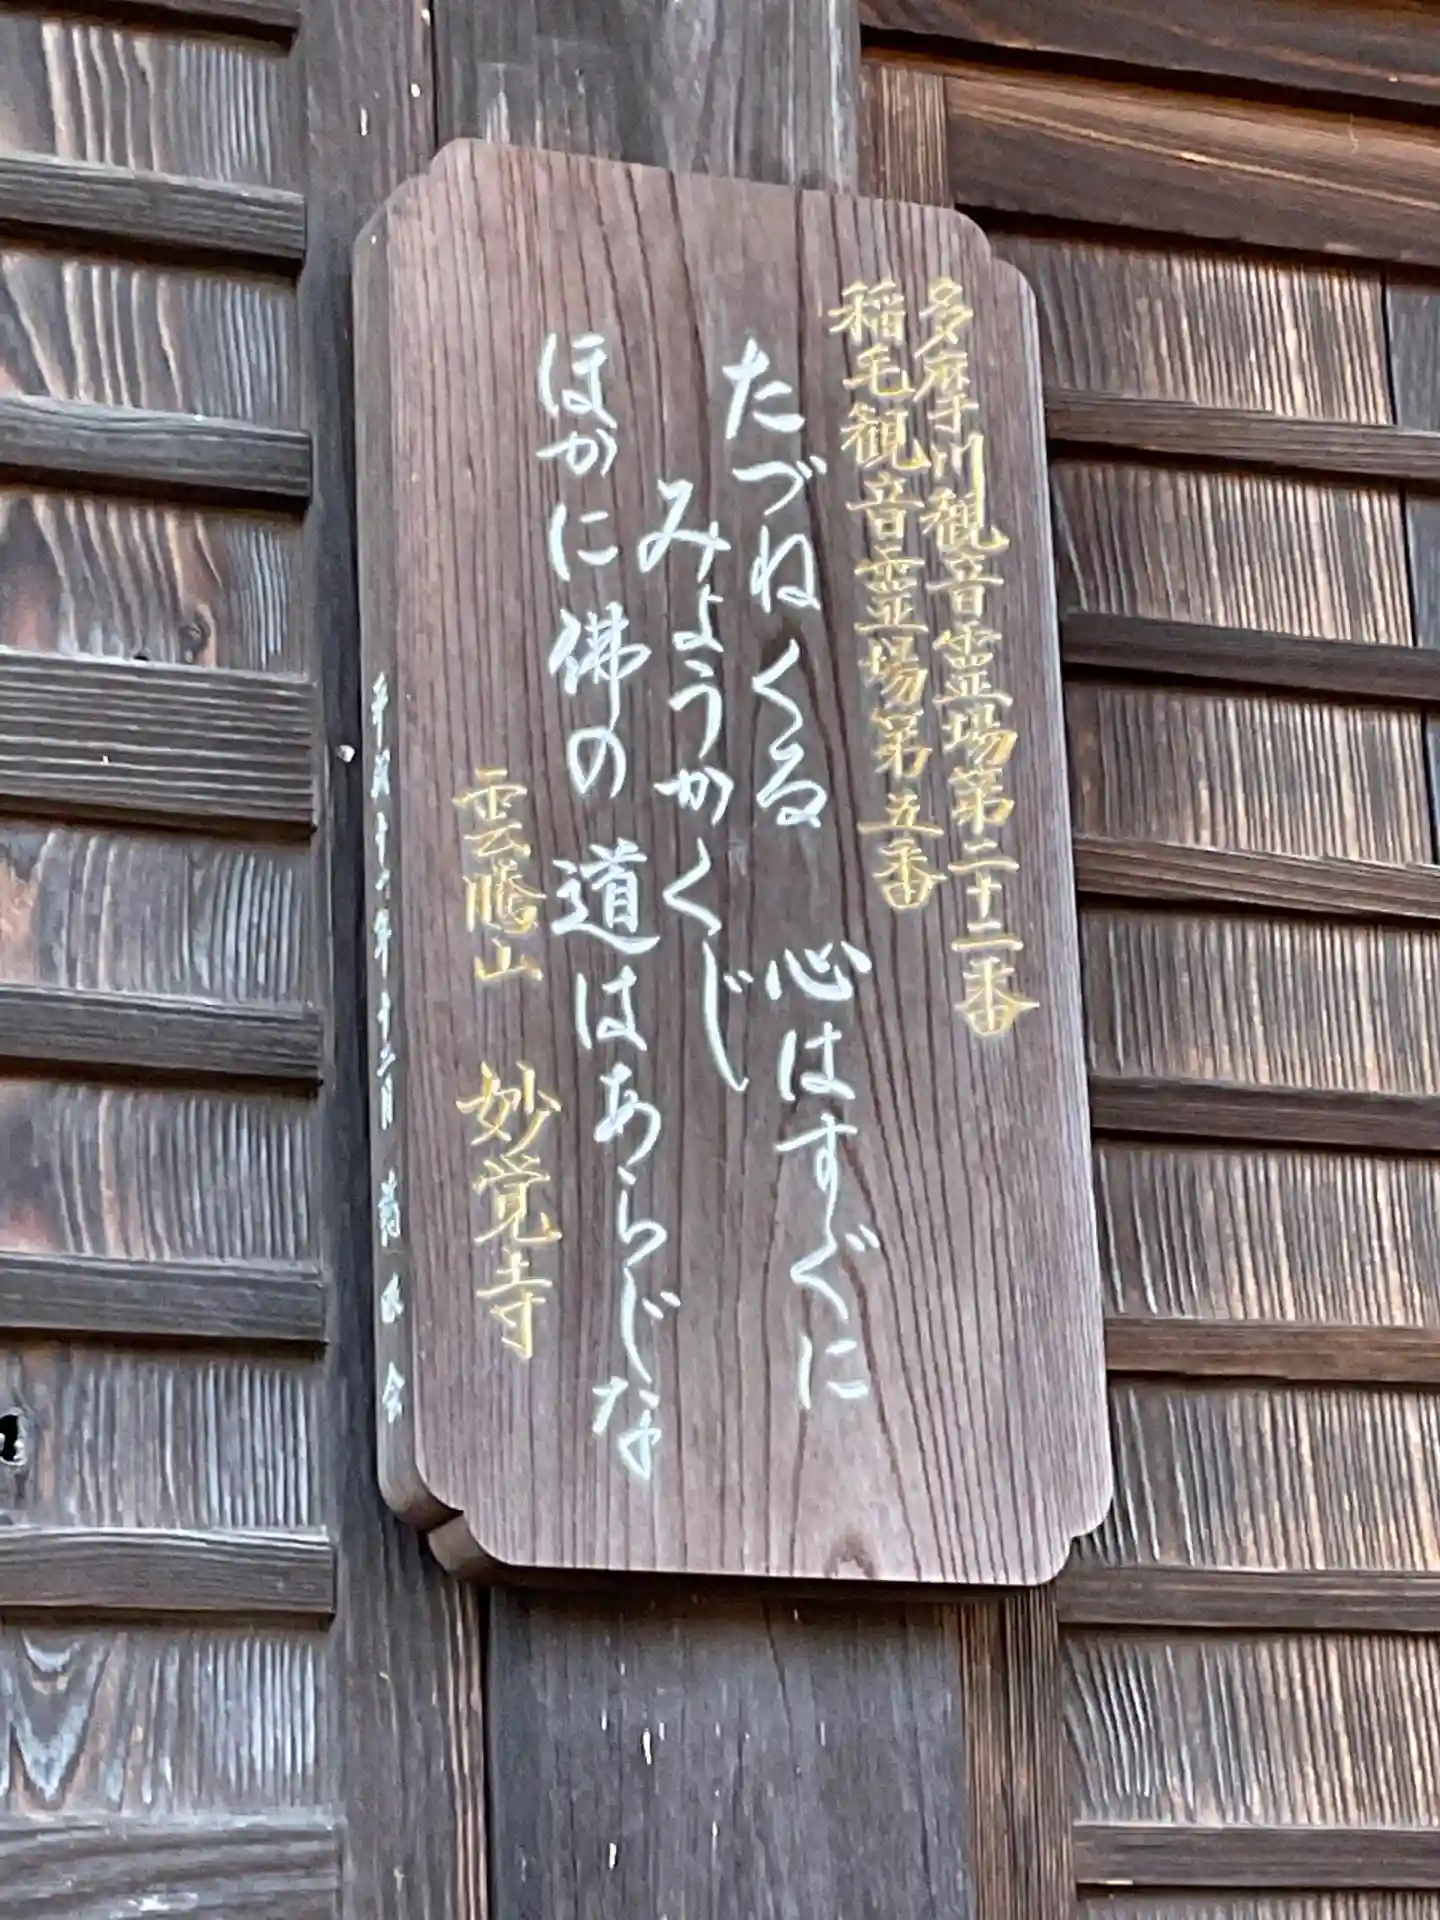 多摩川観音霊場第二十二番
稲毛観音霊場第五番
たづねくる 心はすぐに
みようかくじ
ほかに佛の 道はあらじな
雲騰山 妙覚寺